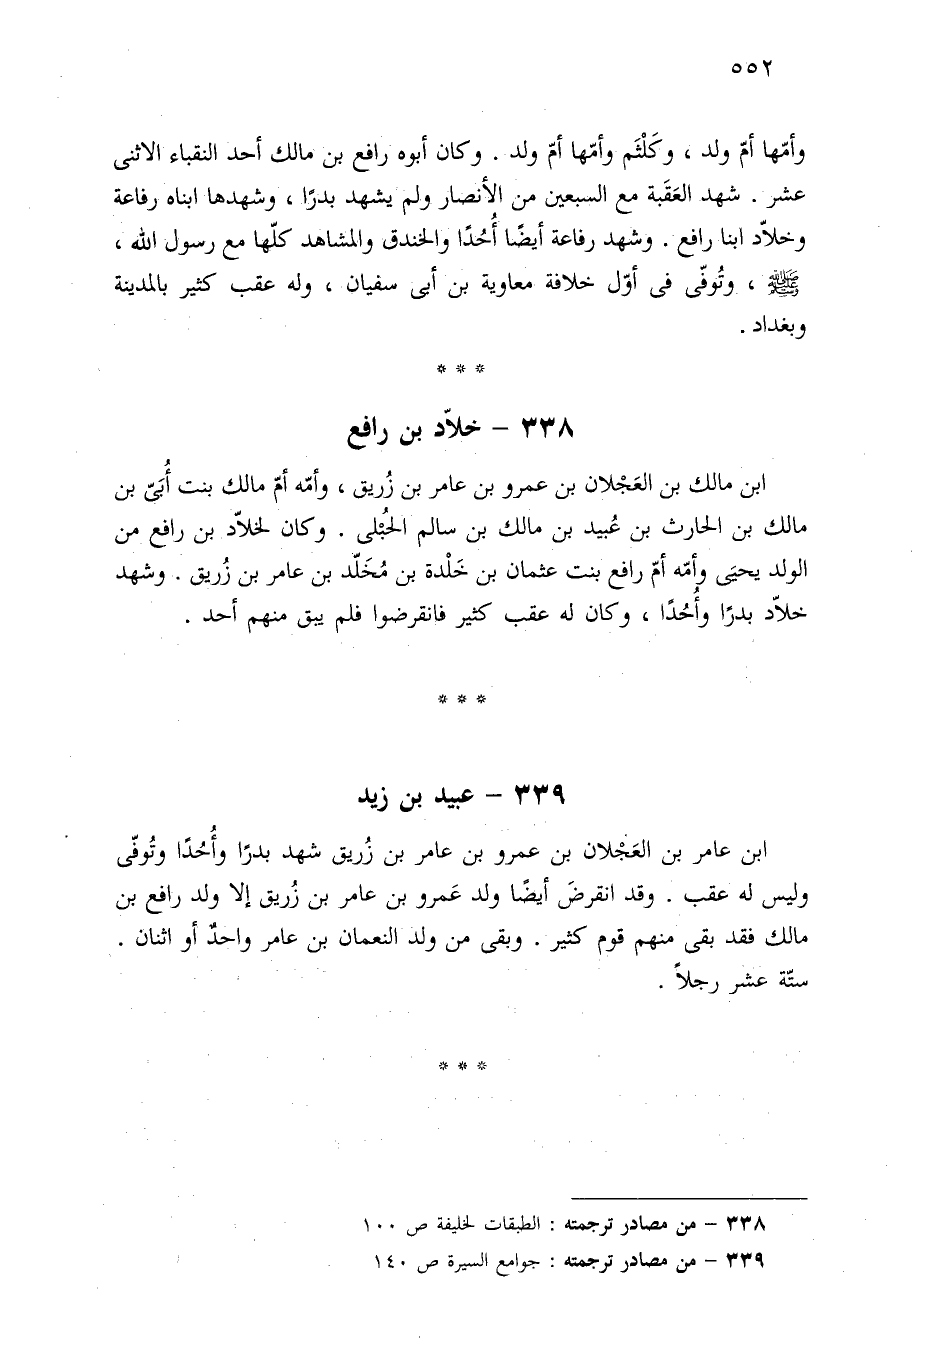 ٥٥٢
وأمّها أمّ ولد ، وكَلْثَم وأمّها أمّ ولد . وكان أبوه رافع بن مالك أحد النقباء الاثنى
عشر . شهد العَقَبة مع السبعين من الأنصار ولم يشهد بدرًا ، وشهدها ابناه رفاعة
وخلاّد ابنا رافع . وشهد رفاعة أيضًا أُحُدًا والخندق والمشاهد كلّها مع رسول الله ،
ﷺ ، وتُوفّى فى أوّل خلافة معاوية بن أبى سفيان ، وله عقب كثير بالمدينة
وبغداد .
* * *
٣٣٨ – خلاّد بن رافع
ابن مالك بن العَجْلان بن عمرو بن عامر بن زُريق ، وأمّه أمّ مالك بنت أُبَىّ بن
مالك بن الحارث بن عُبيد بن مالك بن سالم الحُبْلى . وكان لخلاّد بن رافع من
الولد يحيَى وأمّه أمّ رافع بنت عثمان بن خَلْدة بن مُخَلّد بن عامر بن زُريق . وشهد
خلاّد بدرًا وأُحُدًا ، وكان له عقب كثير فانقرضوا فلم يبق منهم أحد .
* * *
٣٣٩ – عبيد بن زيد
ابن عامر بن العَجْلان بن عمرو بن عامر بن زُريق شهد بدرًا وأُحُدًا وتُوفّى
وليس له عقب . وقد انقرضَ أيضًا ولد عَمرو بن عامر بن زُريق إلا ولد رافع بن
مالك فقد بقى منهم قوم كثير . وبقى من ولد النعمان بن عامر واحدٌ أو اثنان .
ستّة عشر رجلاً .
* * *
٣٣٨ – من مصادر ترجمته : الطبقات لخليفة ص ١٠٠
٣٣٩ – من مصادر ترجمته : جوامع السيرة ص ١٤٠